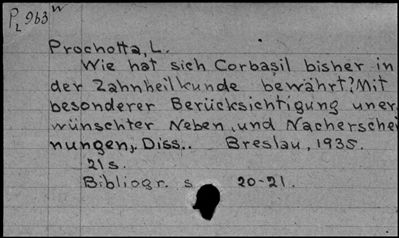 P₂963ᵂ
Prochotta, L.
Wie hat sich Corbasil bisher in
der Zahnheilkunde bewährt? Mit
besonderer Berücksichtigung uner
wünschter Neben, und Nacherschei
nungen,. Diss.. Breslau, 1935.
21 s.
Bibliogr. s 20-21.